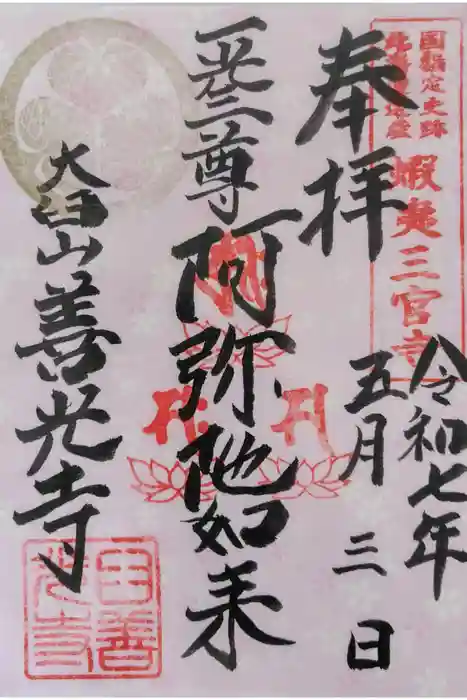 国指定史跡
北海道遺産
蝦夷三官寺
奉拝
令和七年
五月三日
一光三尊
阿弥陀如来
大臼山善光寺